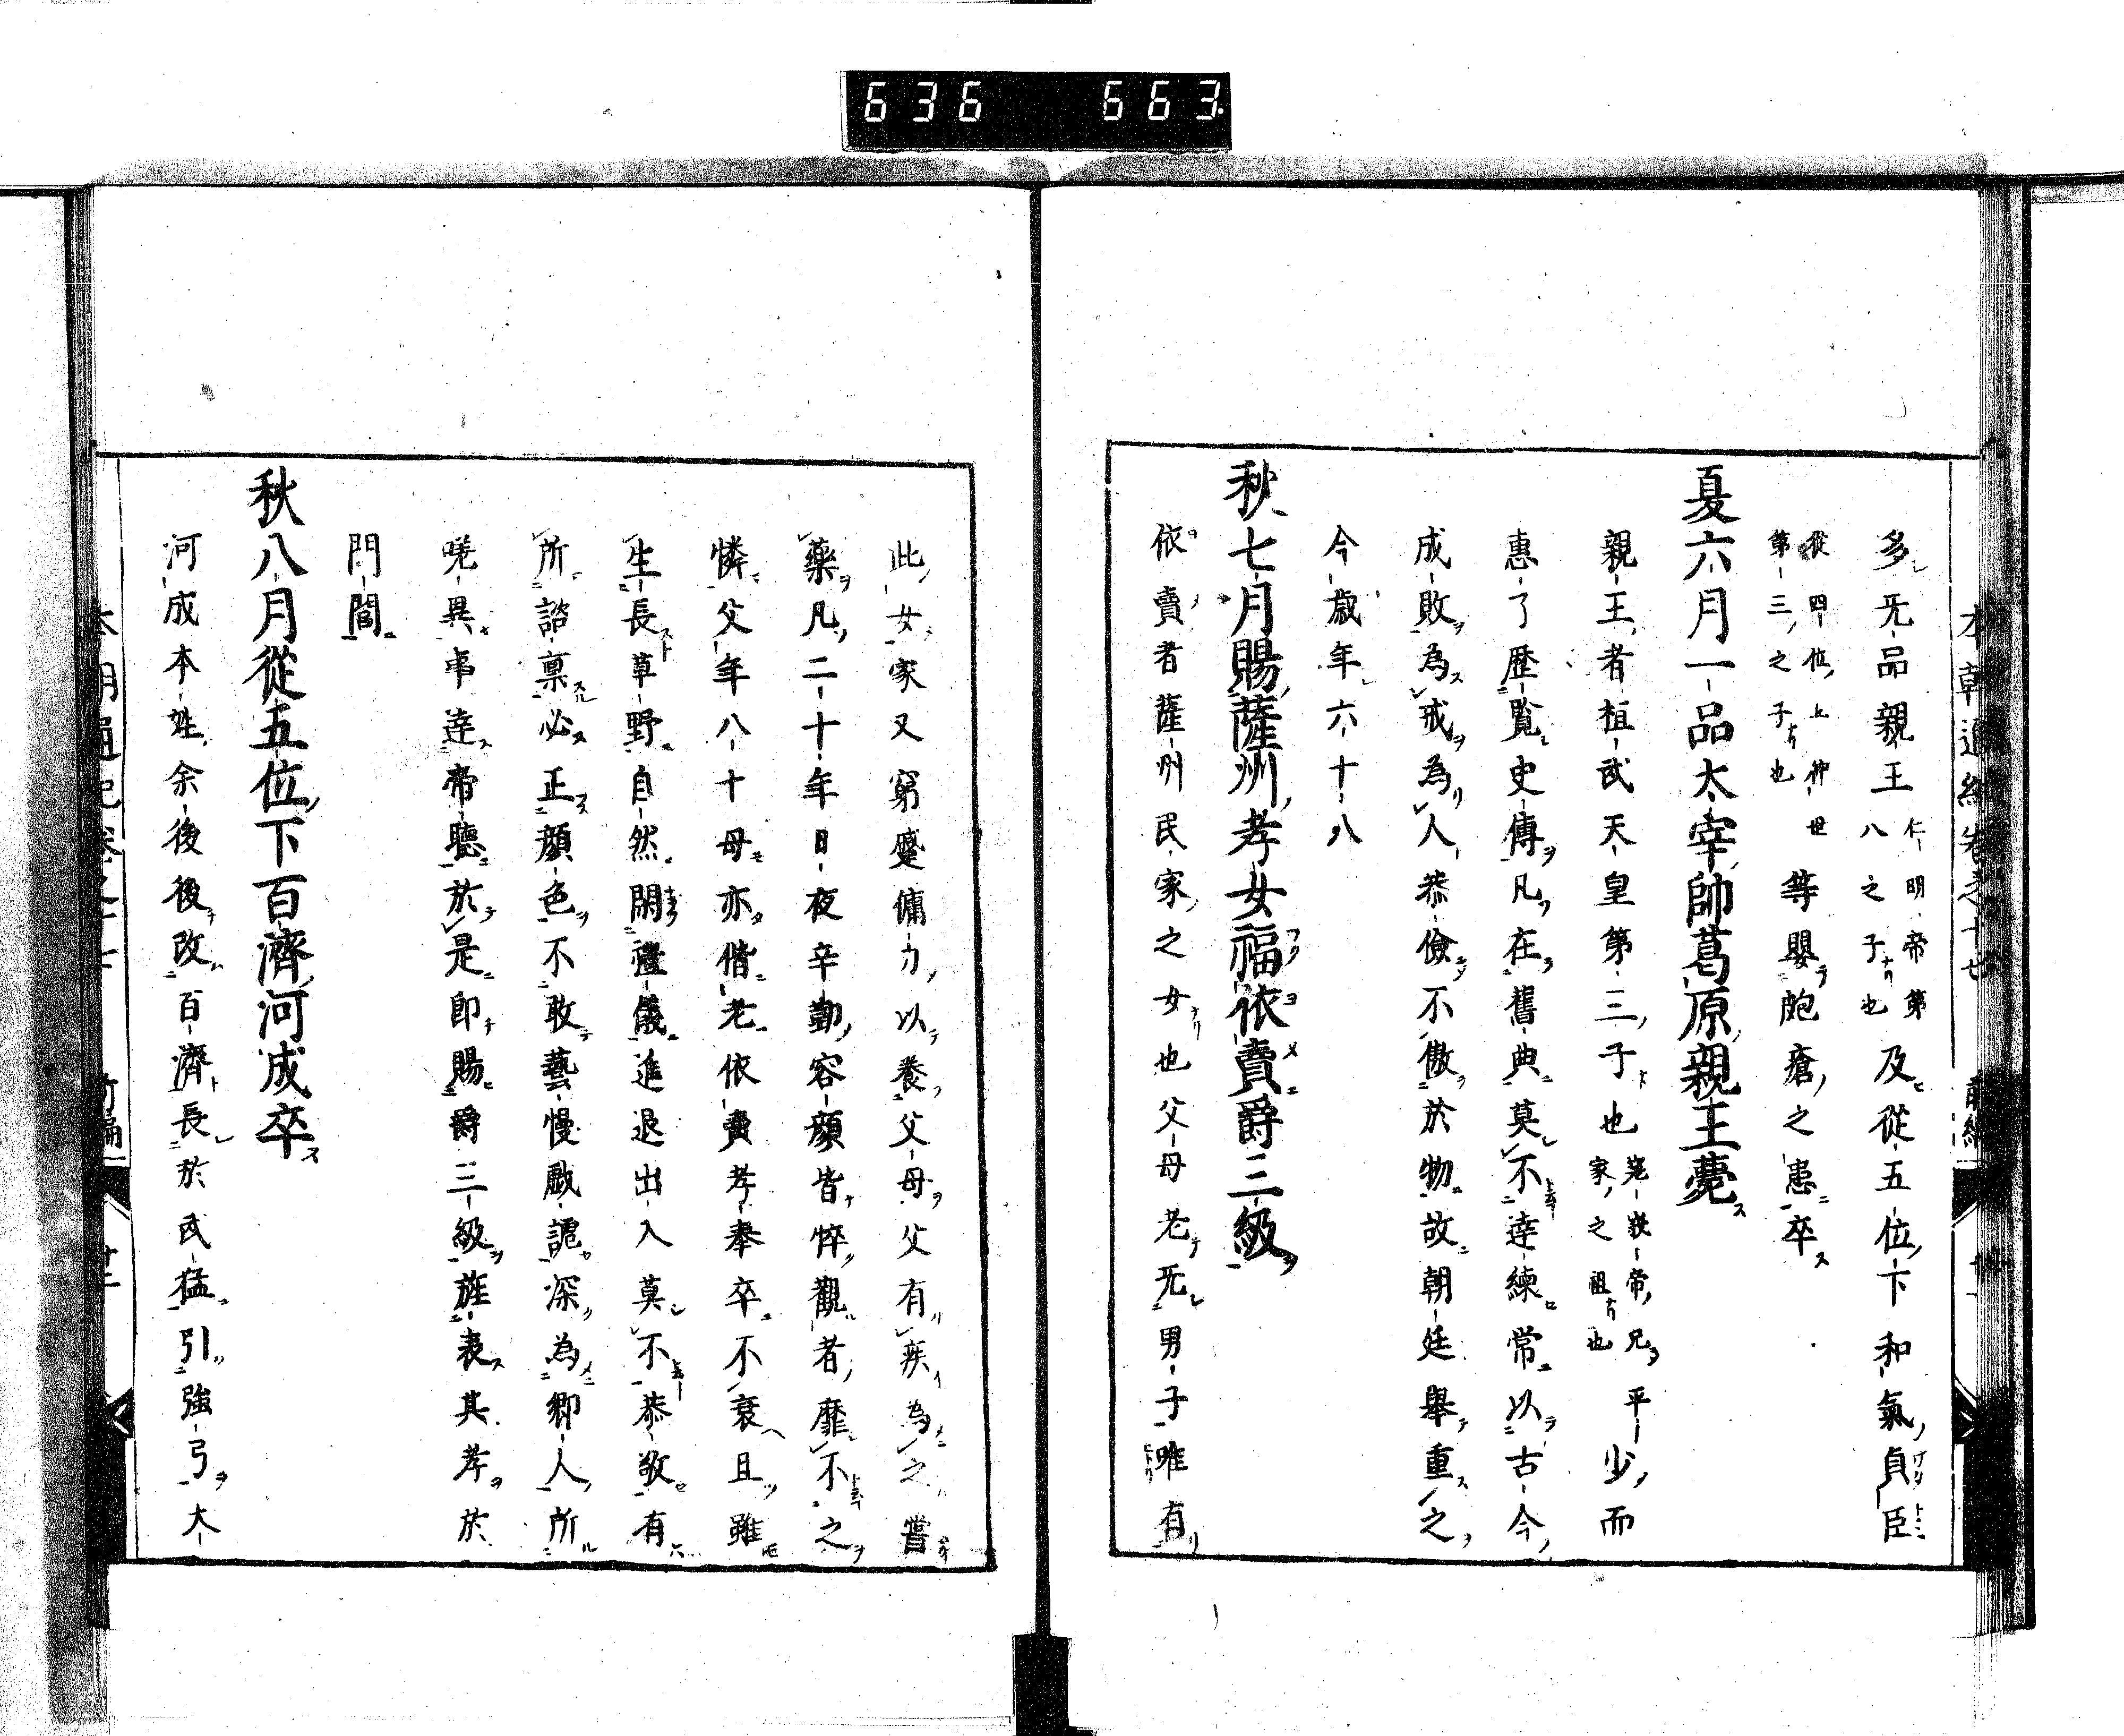 636 663
本朝通紀卷之十七 前編
多无品親王仁明帝第八之子也及從五位下和氣貞臣
從四位上仲世第三之子也等嬰皰瘡之患卒
夏六月一品太宰帥葛原親王薨
親王者桓武天皇第三子也嵯峨帝兄平家之祖也少而
惠了歷覽史傳凡在舊典莫不達練常以古今
成敗為戒為人恭儉不傲於物故朝廷舉重之
今歲年六十八
秋七月賜薩州孝女福依賣爵三級
依賣者薩州民家之女也父母老无男子唯有
此女家又窮蹙傭力以養父母父有疾為之嘗
藥凡二十年日夜辛勤容顏皆悴觀者靡不之
憐父年八十母亦偕老依賣孝奉卒不衰且雖
生長草野自然閑禮儀進退出入莫不恭敬有
所諮稟必正顏色不敢藝慢戲謔深為鄉人所
嗟異事達帝聽於是即賜爵三級旌表其孝於
門閭
秋八月從五位下百濟河成卒
河成本姓余後後改百濟長於武猛引強弓大
本朝通紀卷之十七 前編 廿二